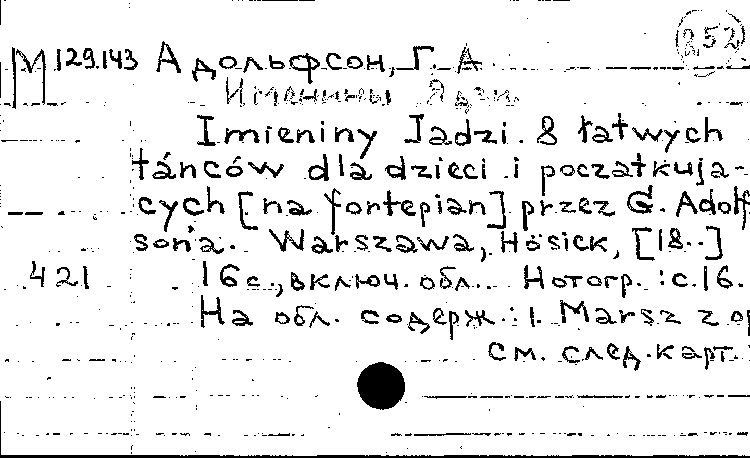 252
М 129.143 Адольфсон, Г. А
Именины Ядзи
Imieniny Jadzi. 8 łatwych
tańców dla dzieci i początkują-
cych [na fortepian] przez G. Adolf
sona. Warszawa, Hösick, [18..]
421 16 с., включ. обл. Нотогр.: с. 16.
На обл. содерж.: 1. Marsz z op
см. след. карт.